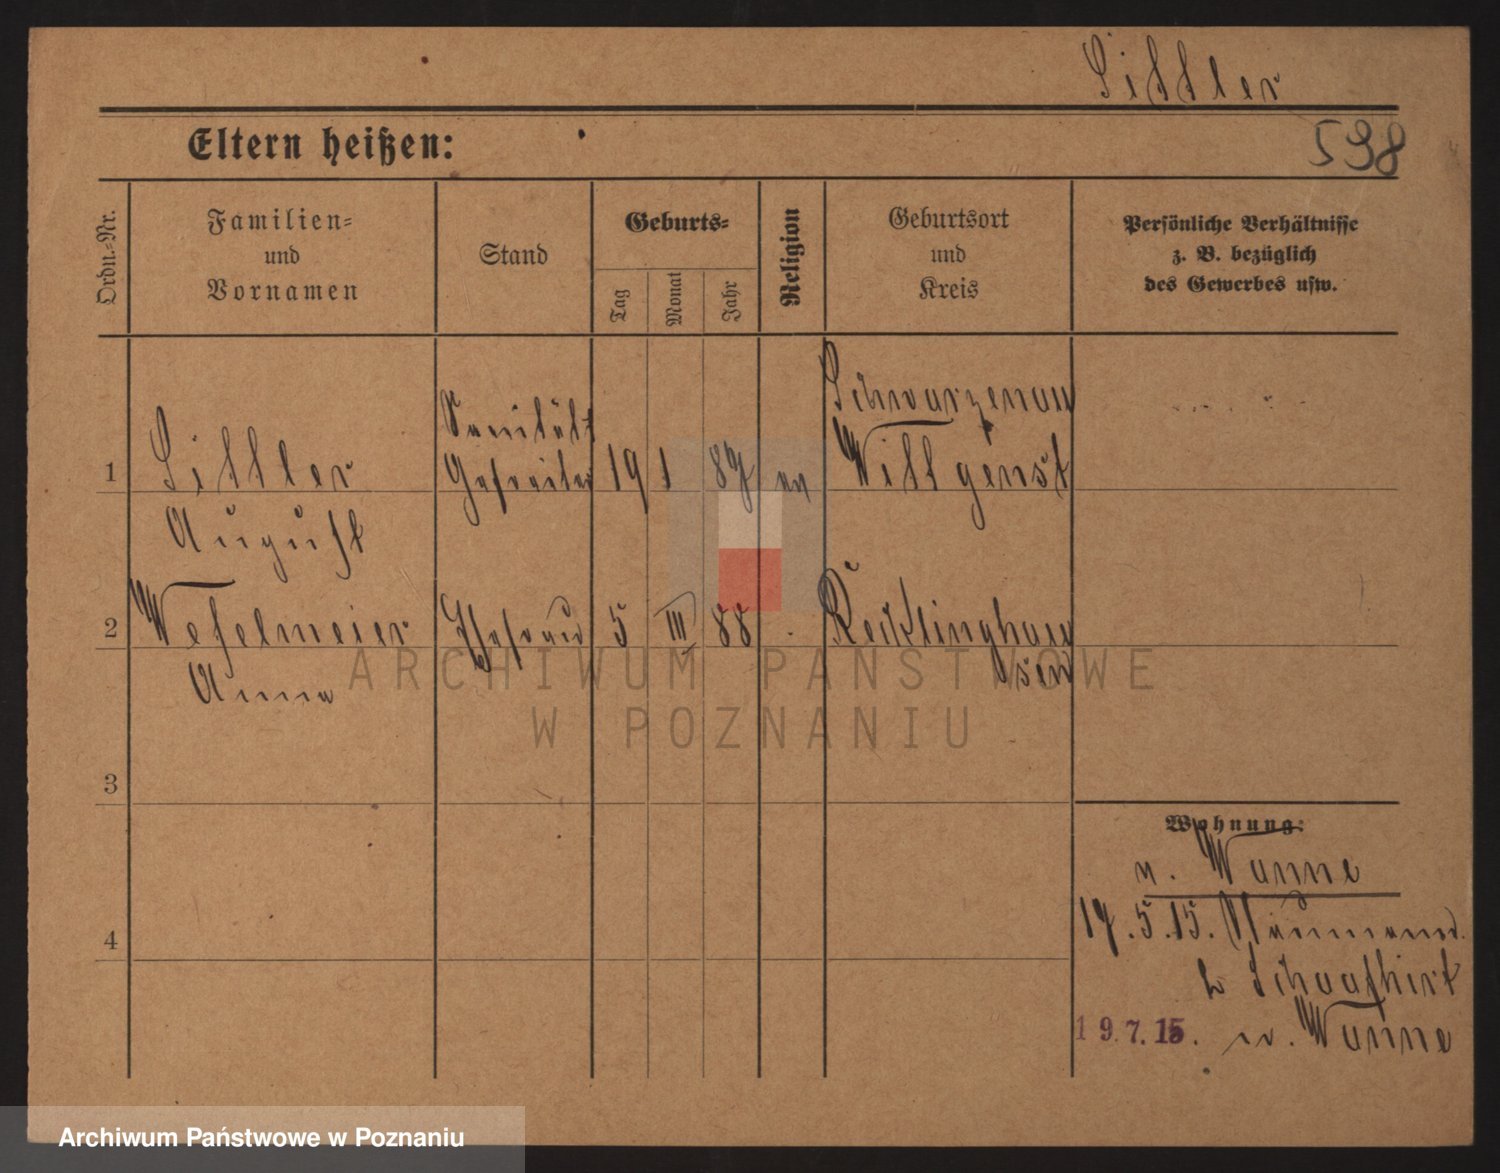 Sittler
Eltern heißen:
598
Ordn.-Nr.
Familien-
und
Vornamen
Stand
Geburts-
Tag
Monat
Jahr
Religion
Geburtsort
und
Kreis
Persönliche Verhältnisse
z. B. bezüglich
des Gewerbes usw.
1
Sittler
August
Sanitäts
Gefreiter
19 1 87
Schwarzenau
Wittgenst
2
Wefelmeier
Anna
Ehefrau
5 III 88
Recklinghau
sen
3
Wohnung:
n. Wanne
17.5.15.
b Schaafhirt
4
19.7.15. Wanne
ARCHIWUM PAŃSTWOWE
W POZNANIU
Archiwum Państwowe w Poznaniu